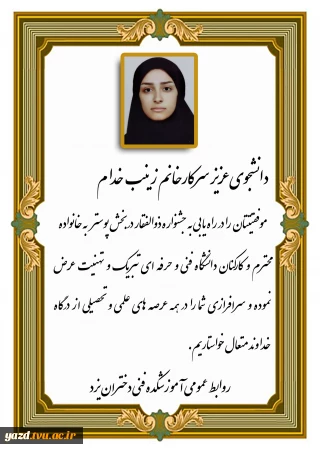 دانشجوی عزیز سرکار خانم زینب خدام
موفقیتتان را در راه یابی به جشنواره ذوالفقار در بخش پوستر به خانواده
محترم و کارکنان دانشگاه فنی و حرفه ای تبریک و تهنیت عرض
نموده و سرافرازی شما را در همه عرصه های علمی و تحصیلی از درگاه
خداوند متعال خواستاریم.
روابط عمومی آموزشکده فنی دختران یزد
yazd.tvu.ac.ir